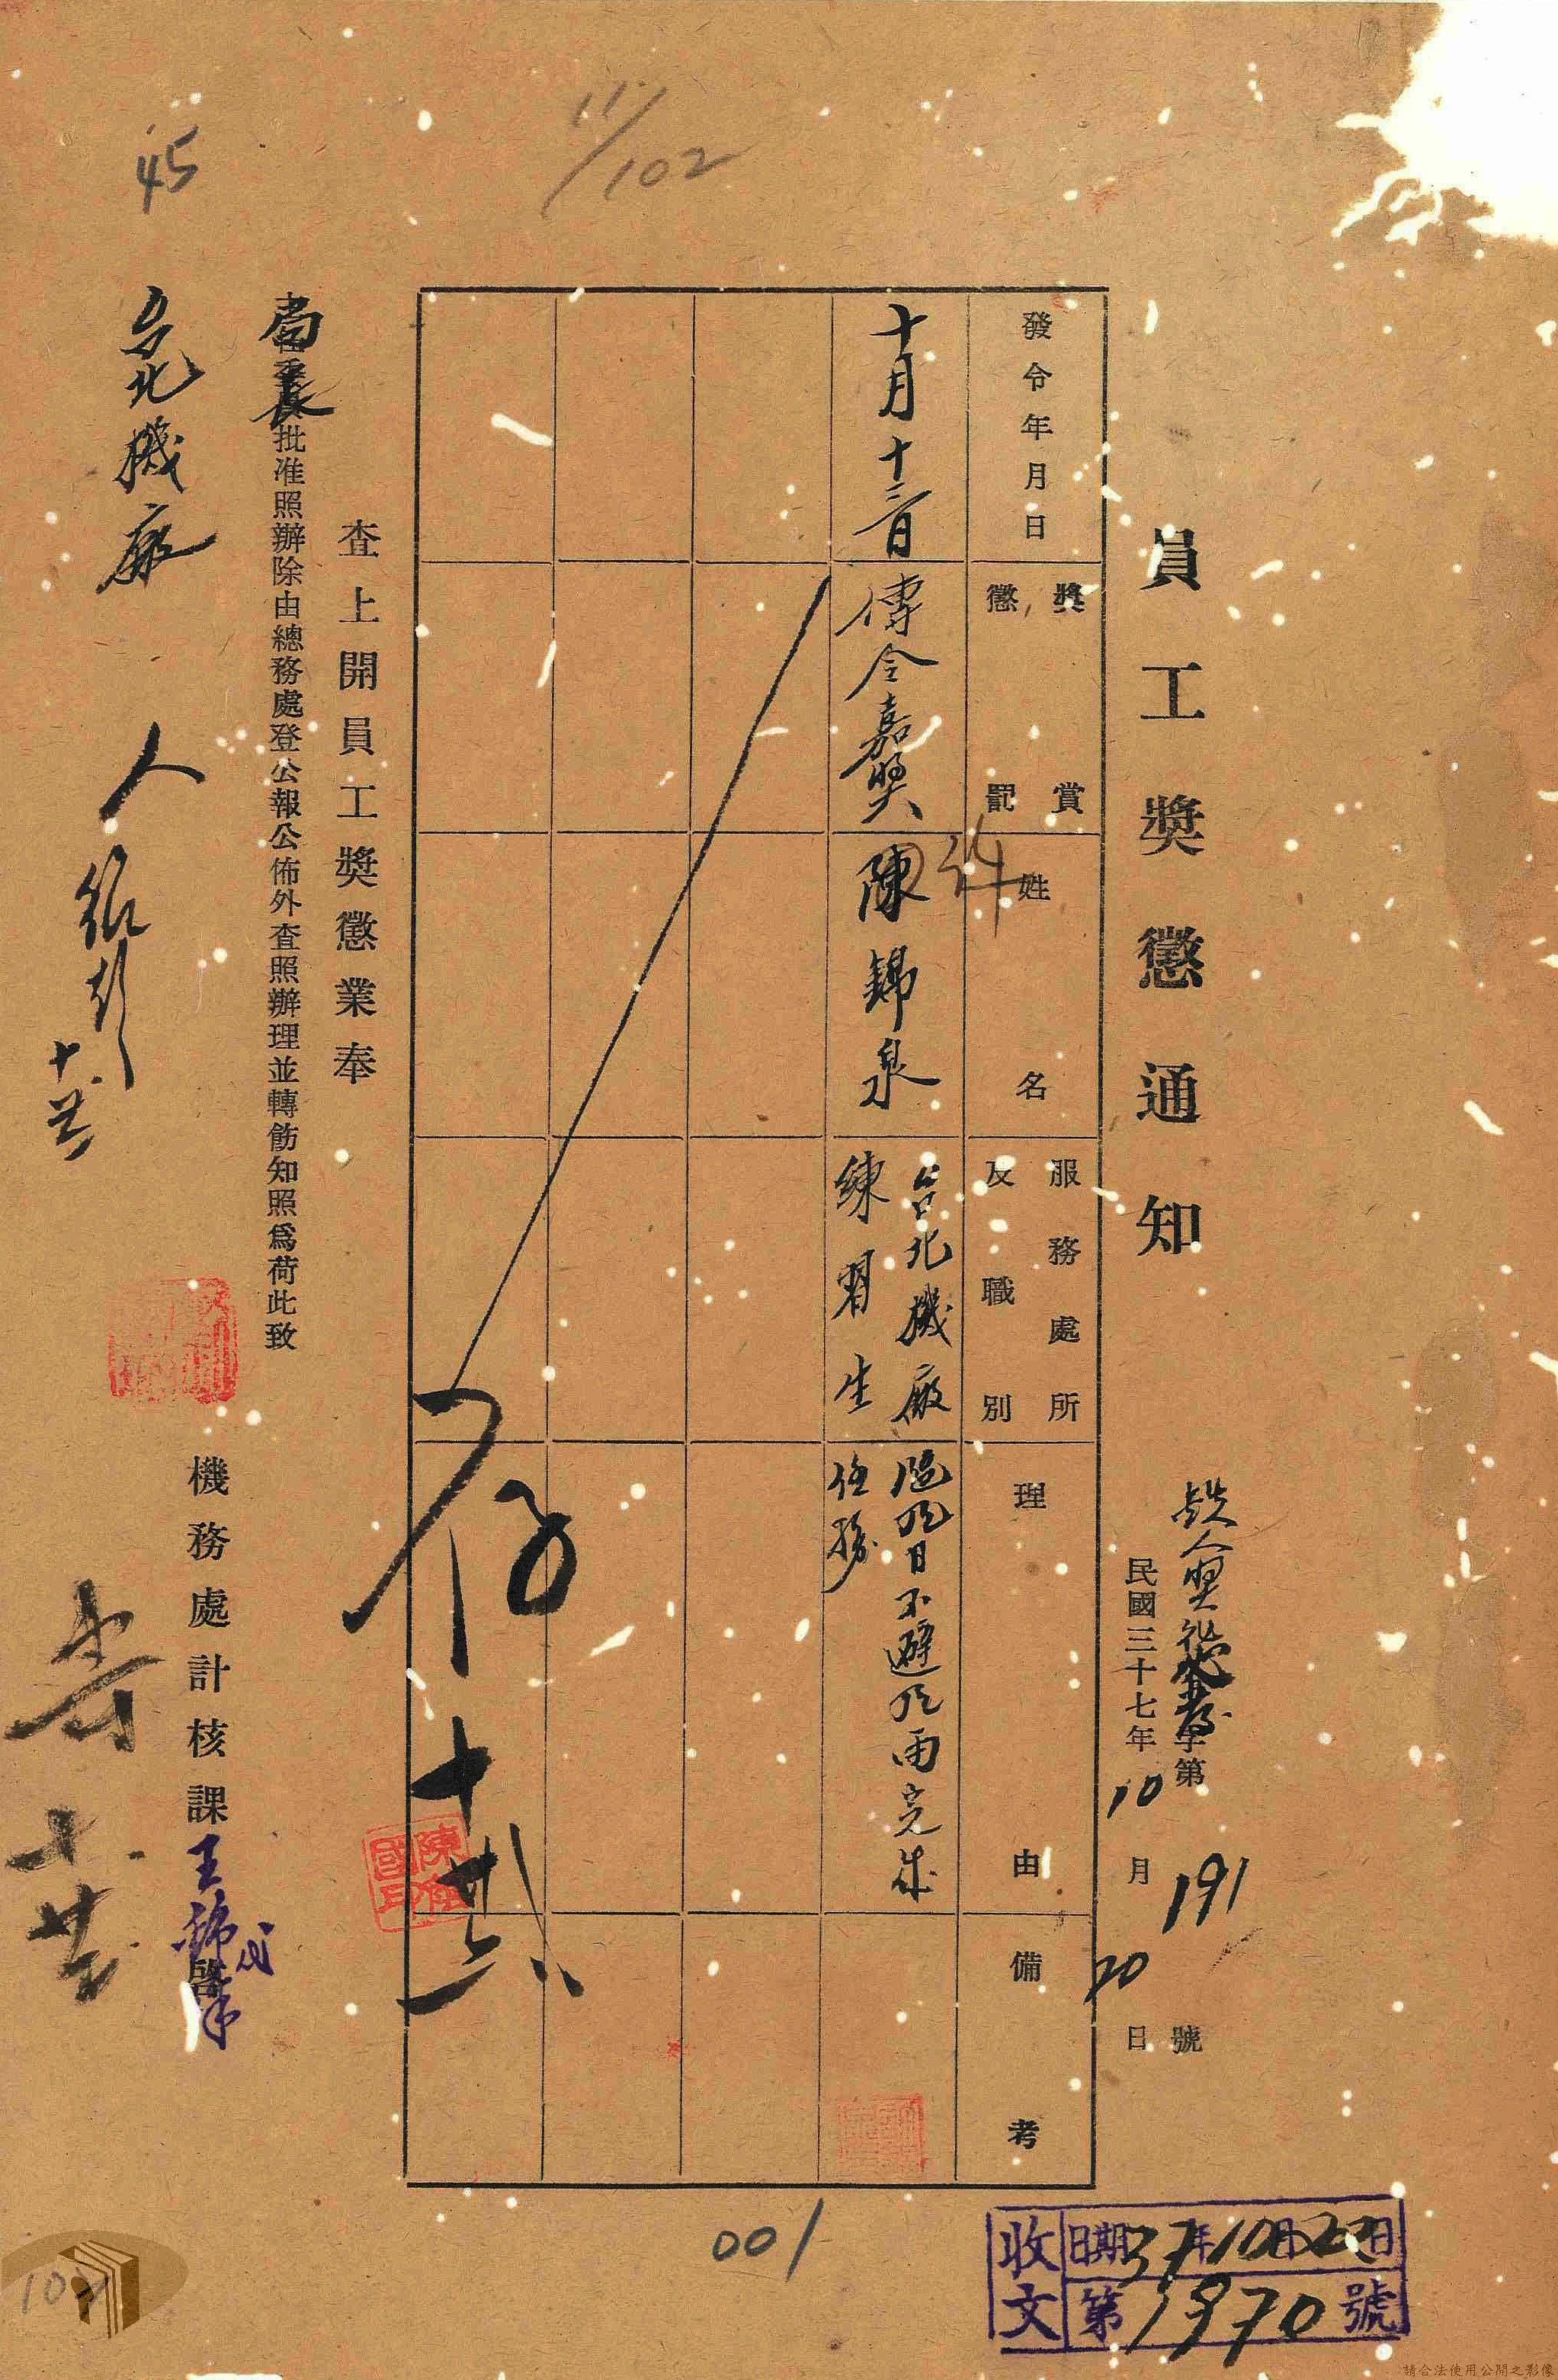 員工獎懲通知
鉄人獎字第191號
民國三十七年10月20日
發令年月日
獎賞
懲罰
姓名
服務處所
及職別
理由
備考
十月十三日
傳令嘉奬
陳錦泉
台北機廠
練習生
颱風日不避風雨完成
任務
查上開員工獎懲業奉
局長批准照辦除由總務處登公報公佈外查照辦理並轉飭知照為荷此致
台北機廠
機務處計核課王錦
啓
存
十
人
收文
日期37年10月22日
第1970號
45
11/102
001
請合法使用公開之影像